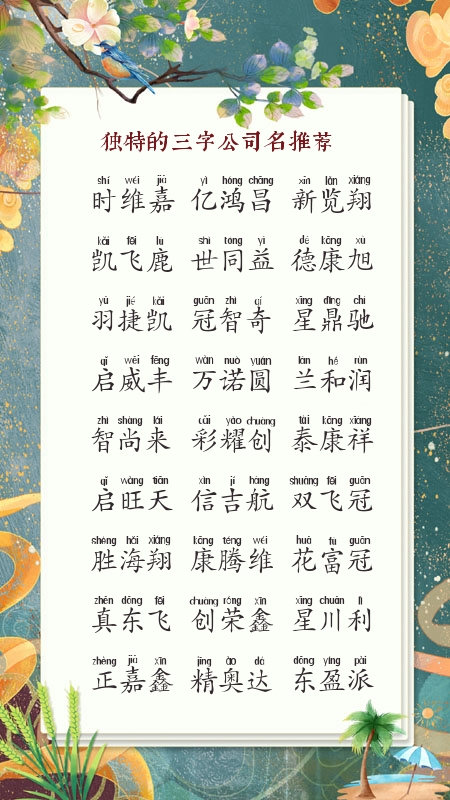 独特的三字公司名推荐
shí wéi jiā yì hóng chāng xīn lǎn xiáng
时维嘉 亿鸿昌 新览翔
kǎi fēi lù shì tóng yì dé kāng xù
凯飞鹿 世同益 德康旭
yǔ jié kǎi guān zhì qí xīng dǐng chí
羽捷凯 冠智奇 星鼎驰
qǐ wēi fēng wàn nuò yuán lán hé rùn
启威丰 万诺圆 兰和润
zhì shàng lái cǎi yào chuàng tài kāng xiáng
智尚来 彩耀创 泰康祥
qǐ wàng tiān xìn jí háng shuāng fēi guān
启旺天 信吉航 双飞冠
shèng hǎi xiáng kāng téng wéi huā fù guān
胜海翔 康腾维 花富冠
zhēn dōng fēi chuàng róng xīn xīng chuān lì
真东飞 创荣鑫 星川利
zhèng jiā xīn jīng ào dá dōng yíng pài
正嘉鑫 精奥达 东盈派